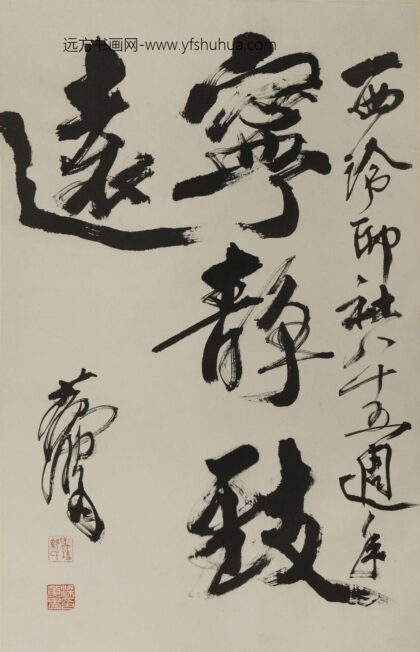 远方书画网-www.yfshuhua.com
西泠印社八十五週年
寧静致
遠
黄胄